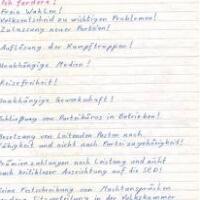 Ich fordere:
Freie Wahlen!
Volksentscheid zu wichtigen Problemen!
Zulassung neuer Parteien!
Auflösung der Kampftruppen!
Unabhängige Medien!
Reisefreiheit!
Unabhängige Gewerkschaft!
Schließung von Parteibüros in Betrieben!
Besetzung von leitenden Posten nach
Fähigkeit und nicht nach Parteizugehörigkeit!
Prämienzahlungen nach Leistung und nicht
nach kritikloser Ausrichtung auf die SED!
Keine Festschreibung von Machtansprüchen
Sitzverteilung in der Volkskammer